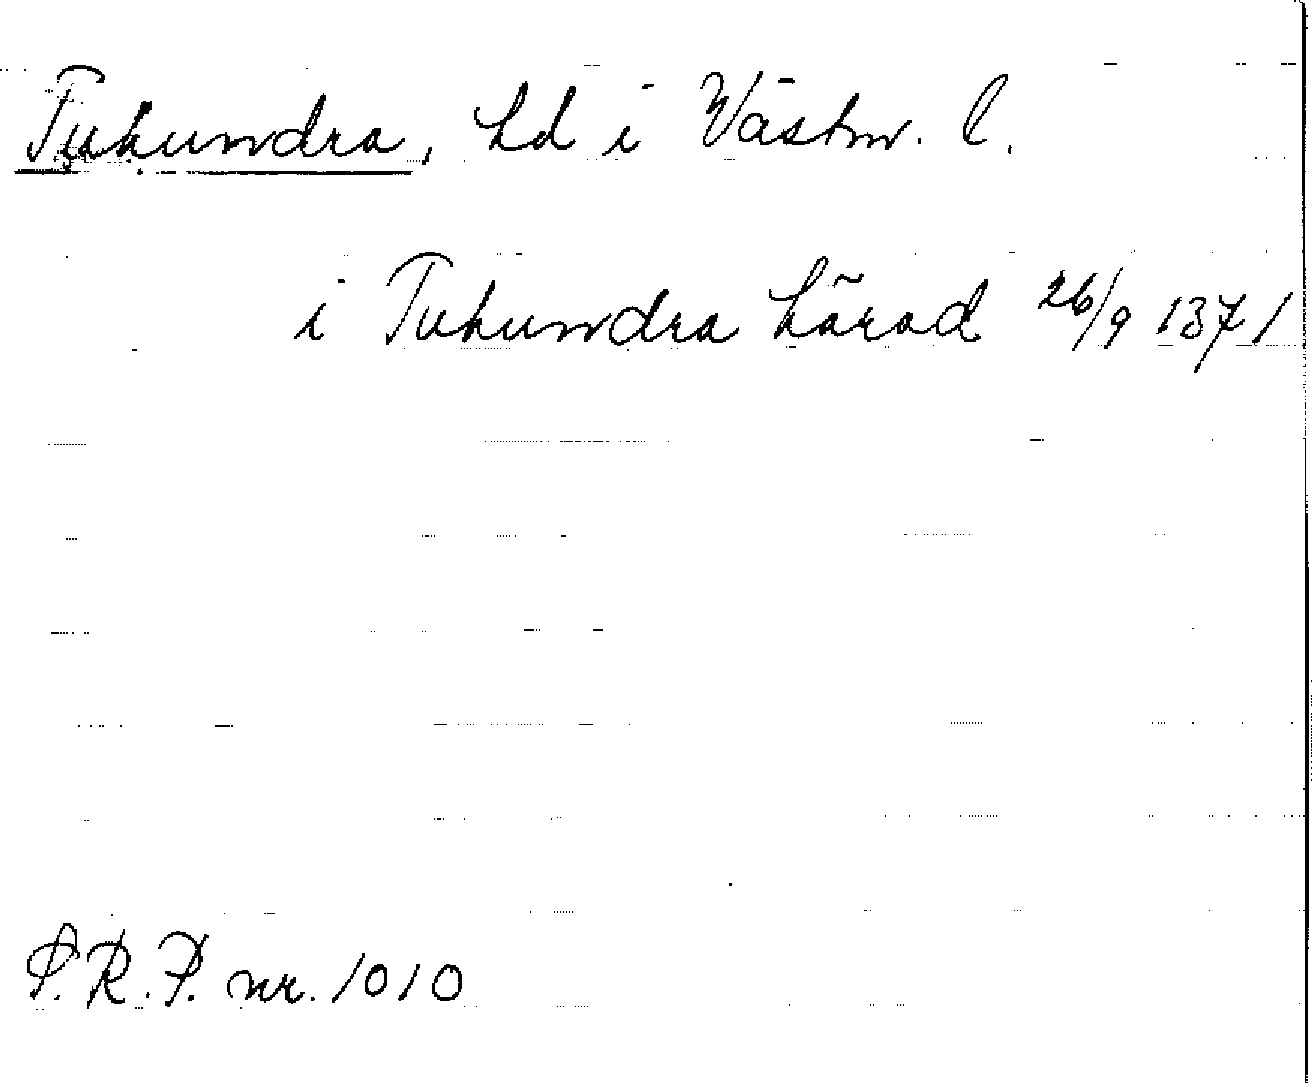 Tuhundra, hd i Västm. l.
i Tuhundra härad 26/9 1371
S.R.P. nr. 1010